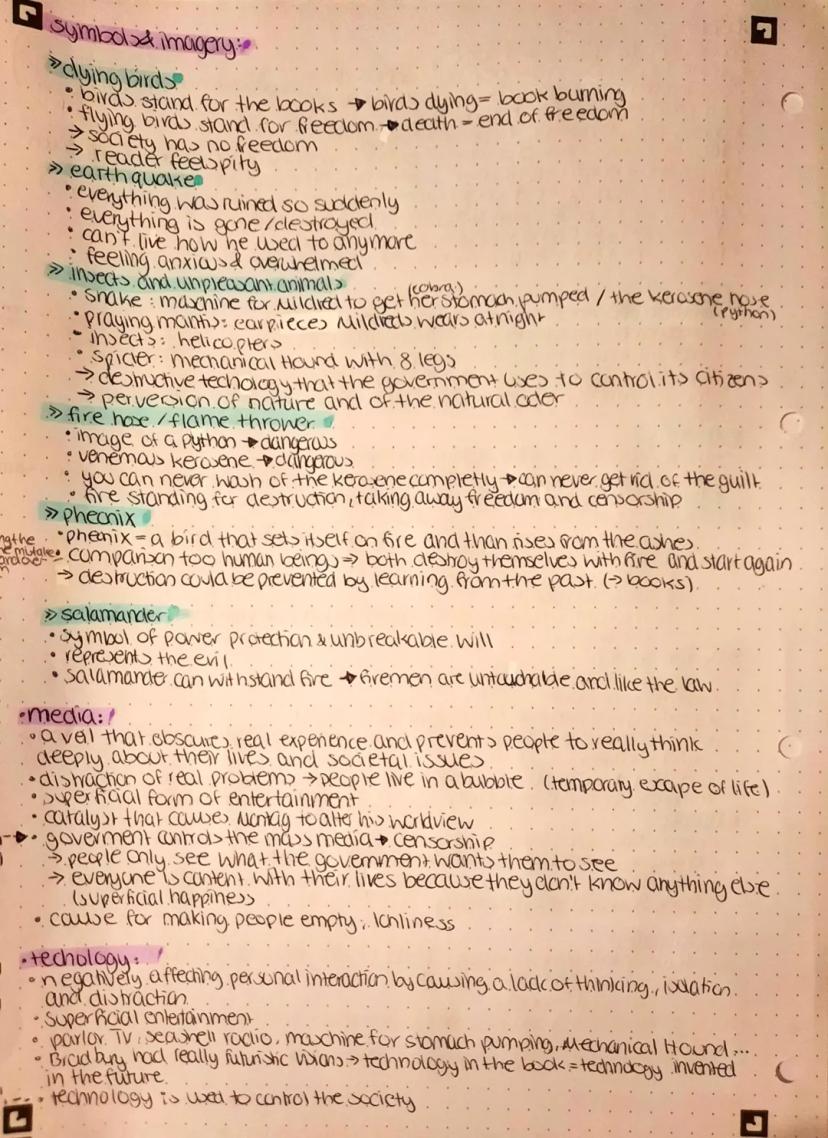 symbols & imagery:
» dying birds
• birds stand for the books → birds dying = book burning
• flying birds stand for freedom → death = end of freedom
→ society has no freedom
→ reader feels pity
» earthquake
• everything was ruined so suddenly
• everything is gone/destroyed
• can't live how he used to anymore
• feeling anxious & overwhelmed
» insects and unpleasant animals
(cobra)
• snake: maschine for Mildred to get her stomach pumped / the kerosene hose
(python)
• praying mantis: earpieces Mildreds wears at night
• insects: helicopters
• spider: mechanical Hound with 8 legs
→ destructive techology that the government uses to control its citizens
→ perversion of nature and of the natural oder
» fire hose/flame thrower
• image of a python → dangerous
• venemous kerosene → dangerous
• you can never wash of the kerosene completly → can never get rid of the guilt
• fire standing for destruction, taking away freedom and censorship
» pheonix
• pheonix = a bird that sets itself on fire and than rises from the ashes
• comparison too human beings → both destroy themselves with fire and start again
→ destruction could be prevented by learning from the past (→ books)
» salamander
• symbol of power protection & unbreakable will
• represents the evil
• salamander can withstand fire → firemen are untouchable and like the law
• media:
• a veil that obscures real experience and prevents people to really think
deeply about their lives and societal issues
• distraction of real problems → people live in a bubble (temporary escape of life)
• superficial form of entertainment
• catalyst that causes Montag to alter his worldview
• goverment controls the mass media → censorship
→ people only see what the government wants them to see
→ everyone is content with their lives because they don't know anything else
(superficial happiness
• cause for making people empty, lonliness
• techology:
• negatively affecting personal interaction by causing a lack of thinking, isolation
and distraction
• superficial entertainment
• parlor TV, seashell radio, maschine for stomach pumping, Mechanical Hound...
• Bradbury had really futuristic visions → technology in the book = technology invented
in the future
• technology is used to control the society